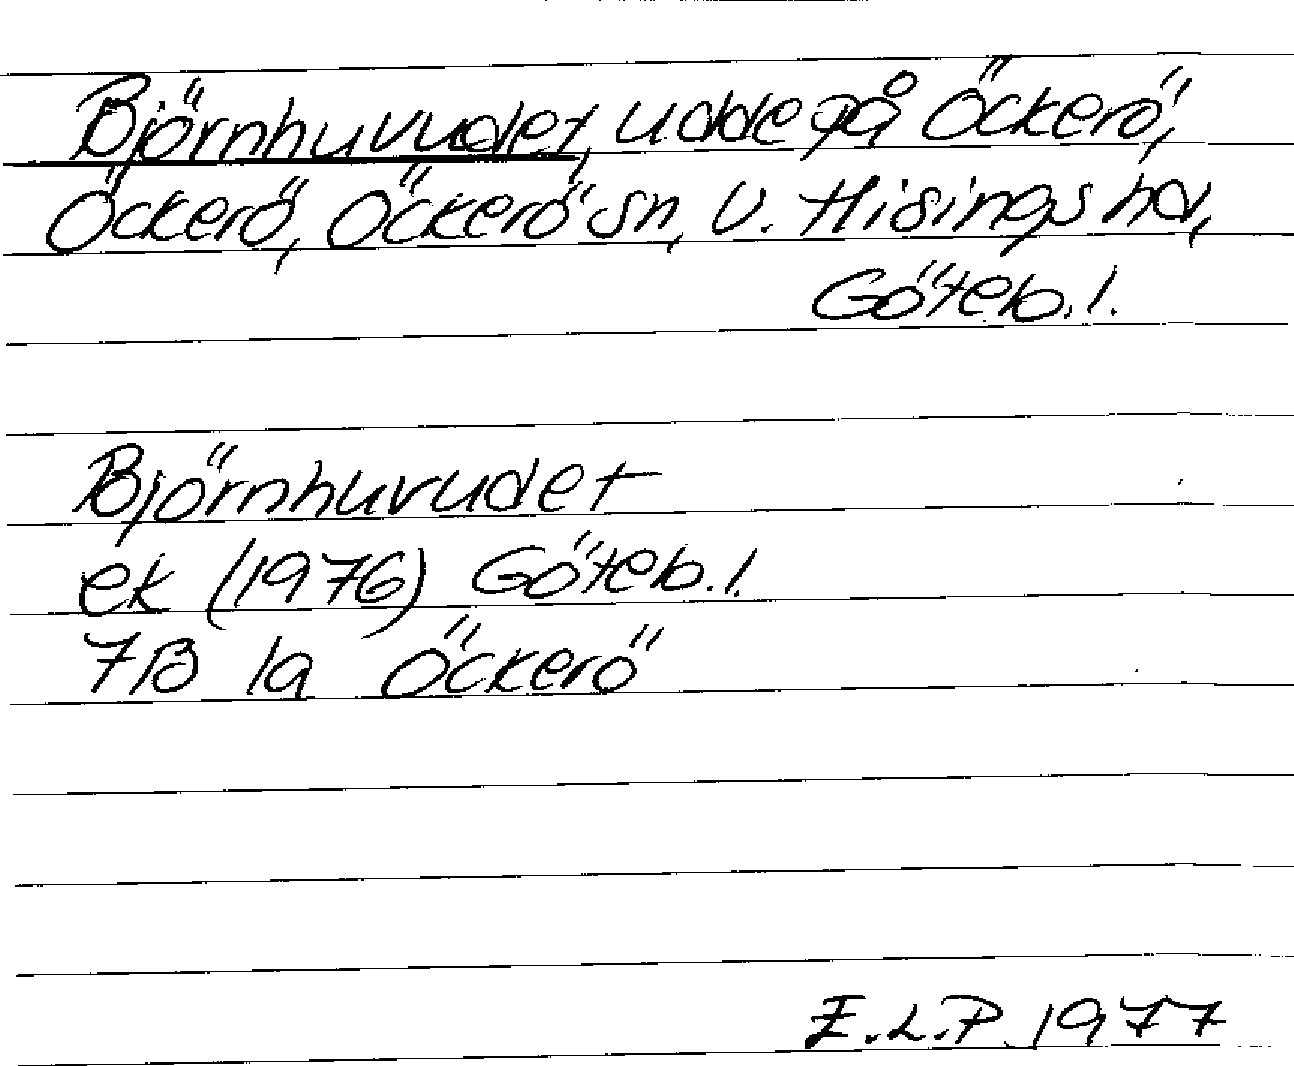 Björnhuvudet, udde på Öckerö,
Öckerö, Öckerö sn, V. Hisings hd,
Göteb. l.
Björnhuvudet
ek (1976) Göteb. l.
7B 1a Öckerö
E.L.P. 1977